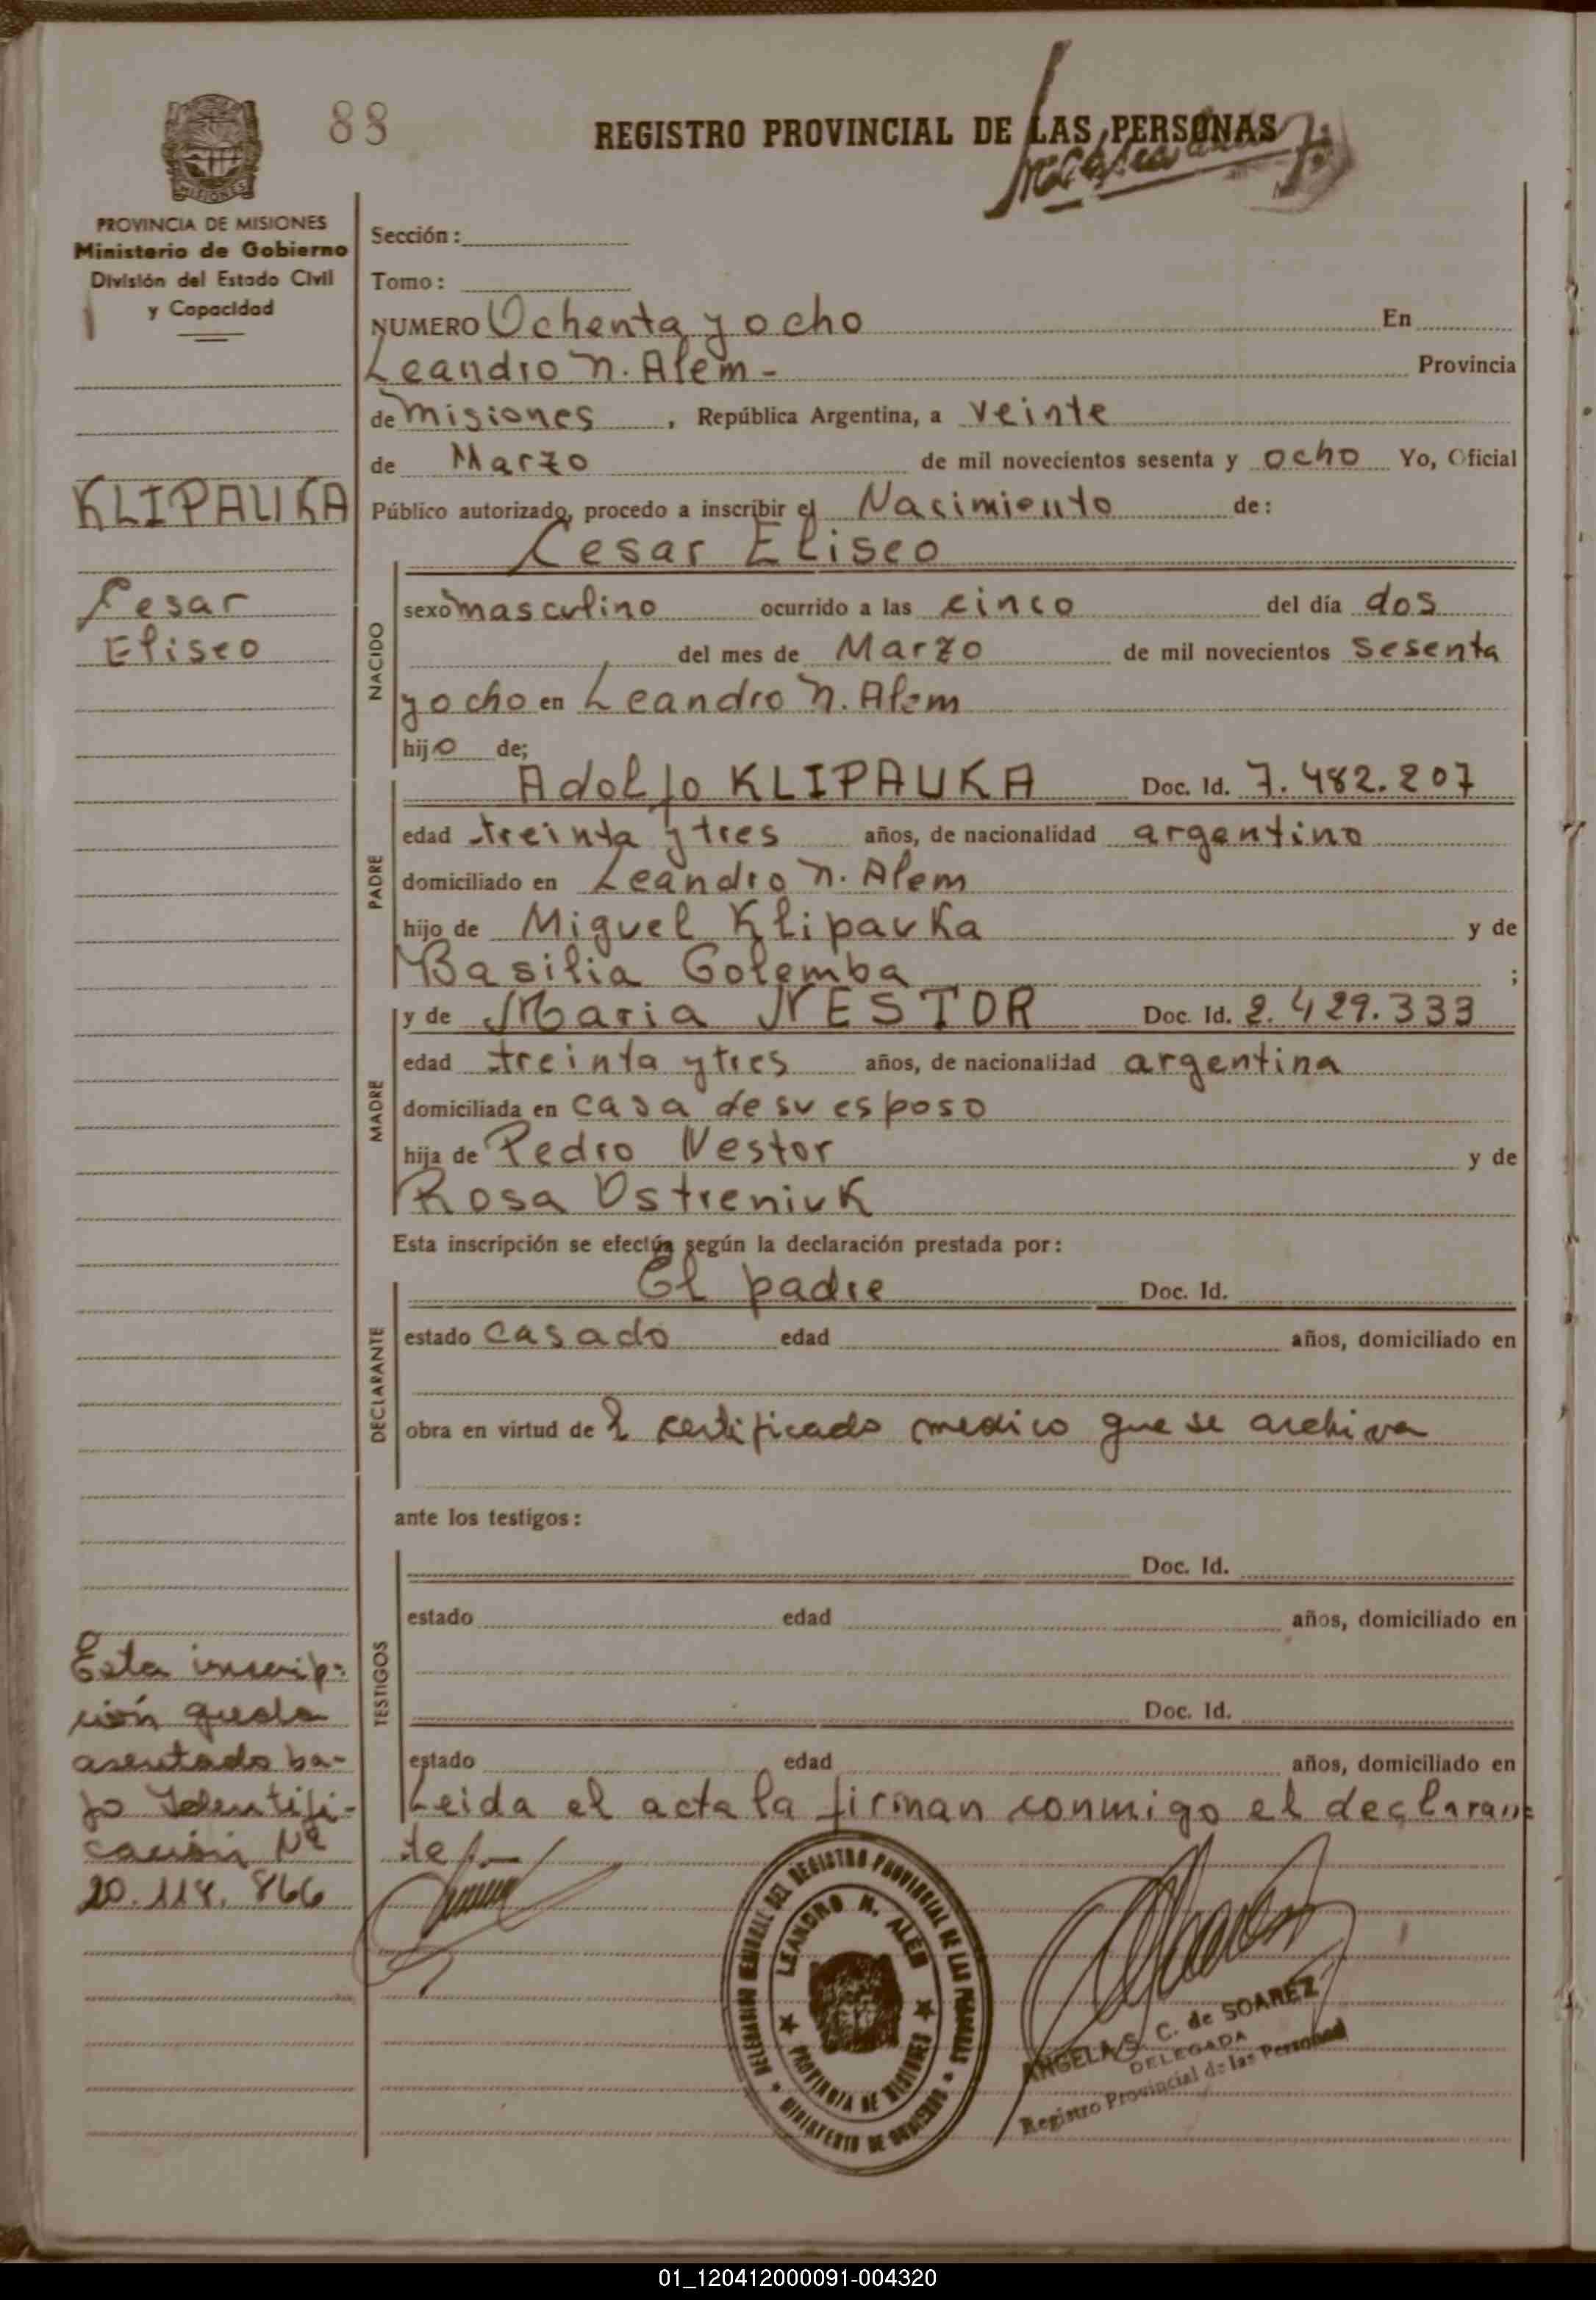 88
REGISTRO PROVINCIAL DE LAS PERSONAS
MISIONES
PROVINCIA DE MISIONES
Ministerio de Gobierno
División del Estado Civil
y Capacidad
KLIPAUKA
Cesar
Eliseo
Sección:
Tomo:
NUMERO Ochenta y ocho En
Leandro N. Alem - Provincia
de Misiones, República Argentina, a veinte
de Marzo de mil novecientos sesenta y ocho Yo, Oficial
Público autorizado, procedo a inscribir el Nacimiento de:
Cesar Eliseo
NACIDO
sexo masculino ocurrido a las cinco del día dos
del mes de Marzo de mil novecientos sesenta
y ocho en Leandro N. Alem
hijo de;
PADRE
Adolfo KLIPAUKA Doc. Id. 7.482.207
edad treinta y tres años, de nacionalidad argentino
domiciliado en Leandro N. Alem
hijo de Miguel Klipauka y de
Basilia Golemba ;
MADRE
y de Maria NESTOR Doc. Id. 2.429.333
edad treinta y tres años, de nacionalidad argentina
domiciliada en casa de su esposo
hija de Pedro Nestor y de
Rosa Ostreniuk
Esta inscripción se efectúa según la declaración prestada por:
DECLARANTE
El padre Doc. Id.
estado casado edad años, domiciliado en
obra en virtud de l certificado medico que se archiva
ante los testigos:
TESTIGOS
Doc. Id.
estado edad años, domiciliado en
Doc. Id.
estado edad años, domiciliado en
Leida el acta la firman conmigo el declaran=
te/.-
Esta inscrip-
ción queda
asentado ba-
jo Identifi-
cación Nº
20.118.866
REGISTRO PROVINCIAL DE LAS PERSONAS
LEANDRO N. ALEM
PROVINCIA DE MISIONES
MINISTERIO DE GOBIERNO
ANGELA S. C. de SOAREZ
DELEGADA
Registro Provincial de las Personas
01_120412000091-004320